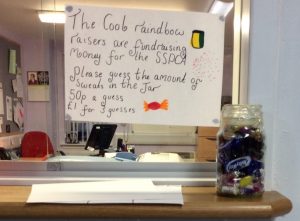 The Coob raindbow
raisers are fundraising
money for the SSPCA
please guess the amount of
sweats in the Jar
50p a guess
£1 for 3 guesses